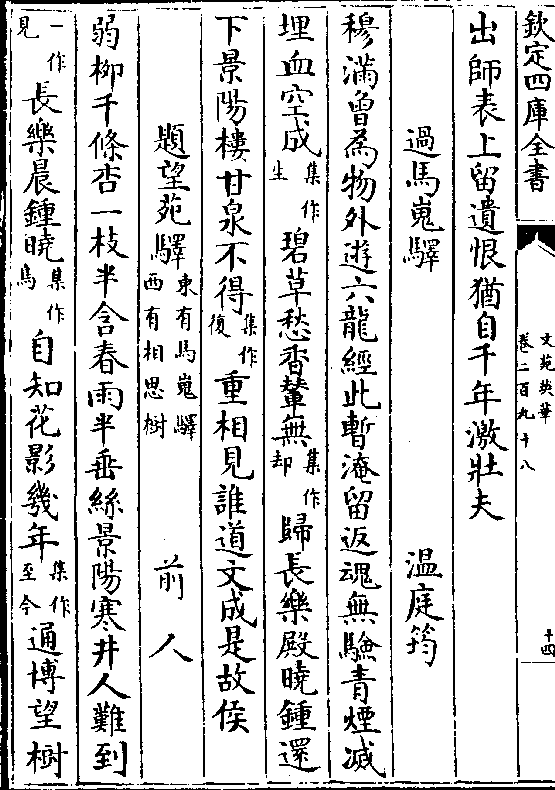 欽定四庫全書
文苑英華
卷二百九十八
十四
出師表上留遺恨猶自千年激壯夫
過馬嵬驛 溫庭筠
穆滿曾為物外遊六龍經此暫淹留返魂無驗青煙滅
埋血空成集作生碧草愁香輦無集作却歸長樂殿曉鍾還
下景陽樓甘泉不得集作復重相見誰道文成是故侯
題望苑驛東有馬嵬驛西有相思樹 前人
弱柳千條杏一枝半含春雨半垂絲景陽寒井人難到
一作見長樂晨鍾曉集作鳥自知花影幾年集作至今通博望樹